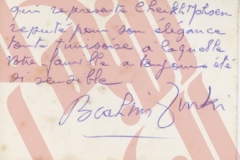 qui représente Cheikh Mohsen
réputé pour son élégance
toute tunisoise à laquelle
Votre famille a toujours été
si sensible